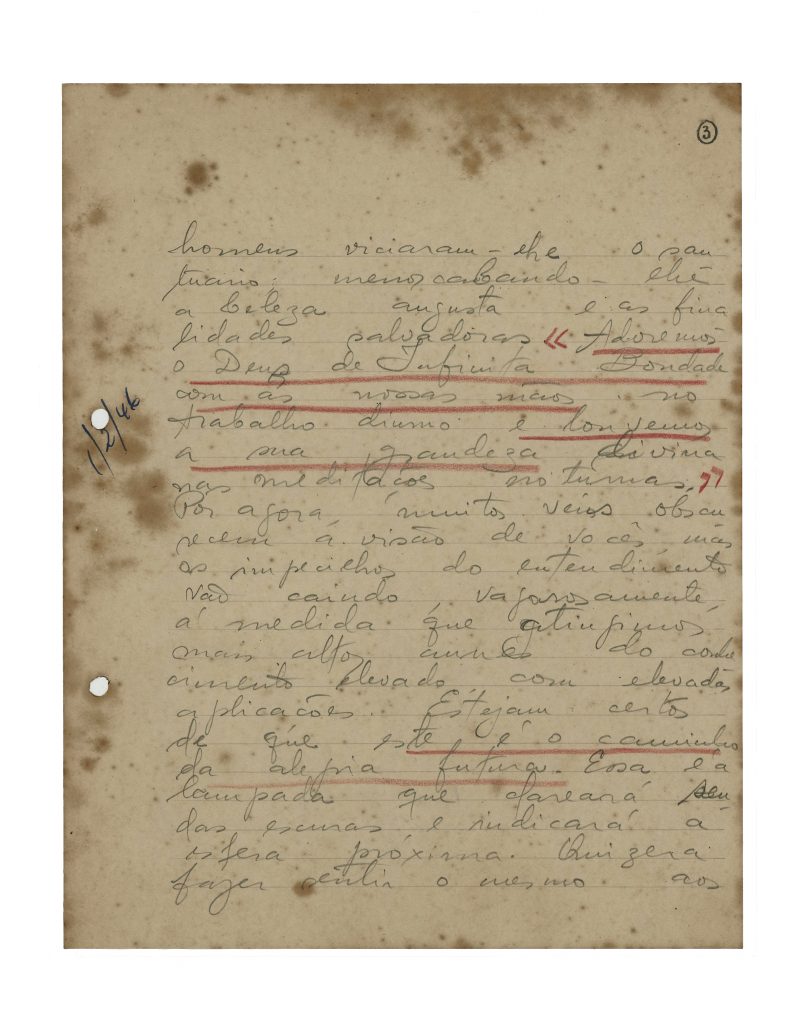 3
homens viciaram-lhe o san
tuario, menoscabando-lhe
a beleza augusta e as fina
lidades salvadoras « Adoremos
o Deus de Infinita Bondade
com as nossas mãos no
trabalho diurno e louvemos
a sua grandeza divina
nas meditações noturnas. »
Por agora, muitos véus obscu
recem a visão de vocês mas
os impecilhos do entendimento
vão caindo vagarosamente,
á medida que atingimos,
mais altos cumes do conhe
cimento elevado com elevadas
aplicações. Estejam certos
de que este é o caminho
da alegria futura. Essa é a
lampada que clareará sen
das escuras e indicará a
esfera próxima. Quizera
fazer sentir o mesmo aos
1/2/46